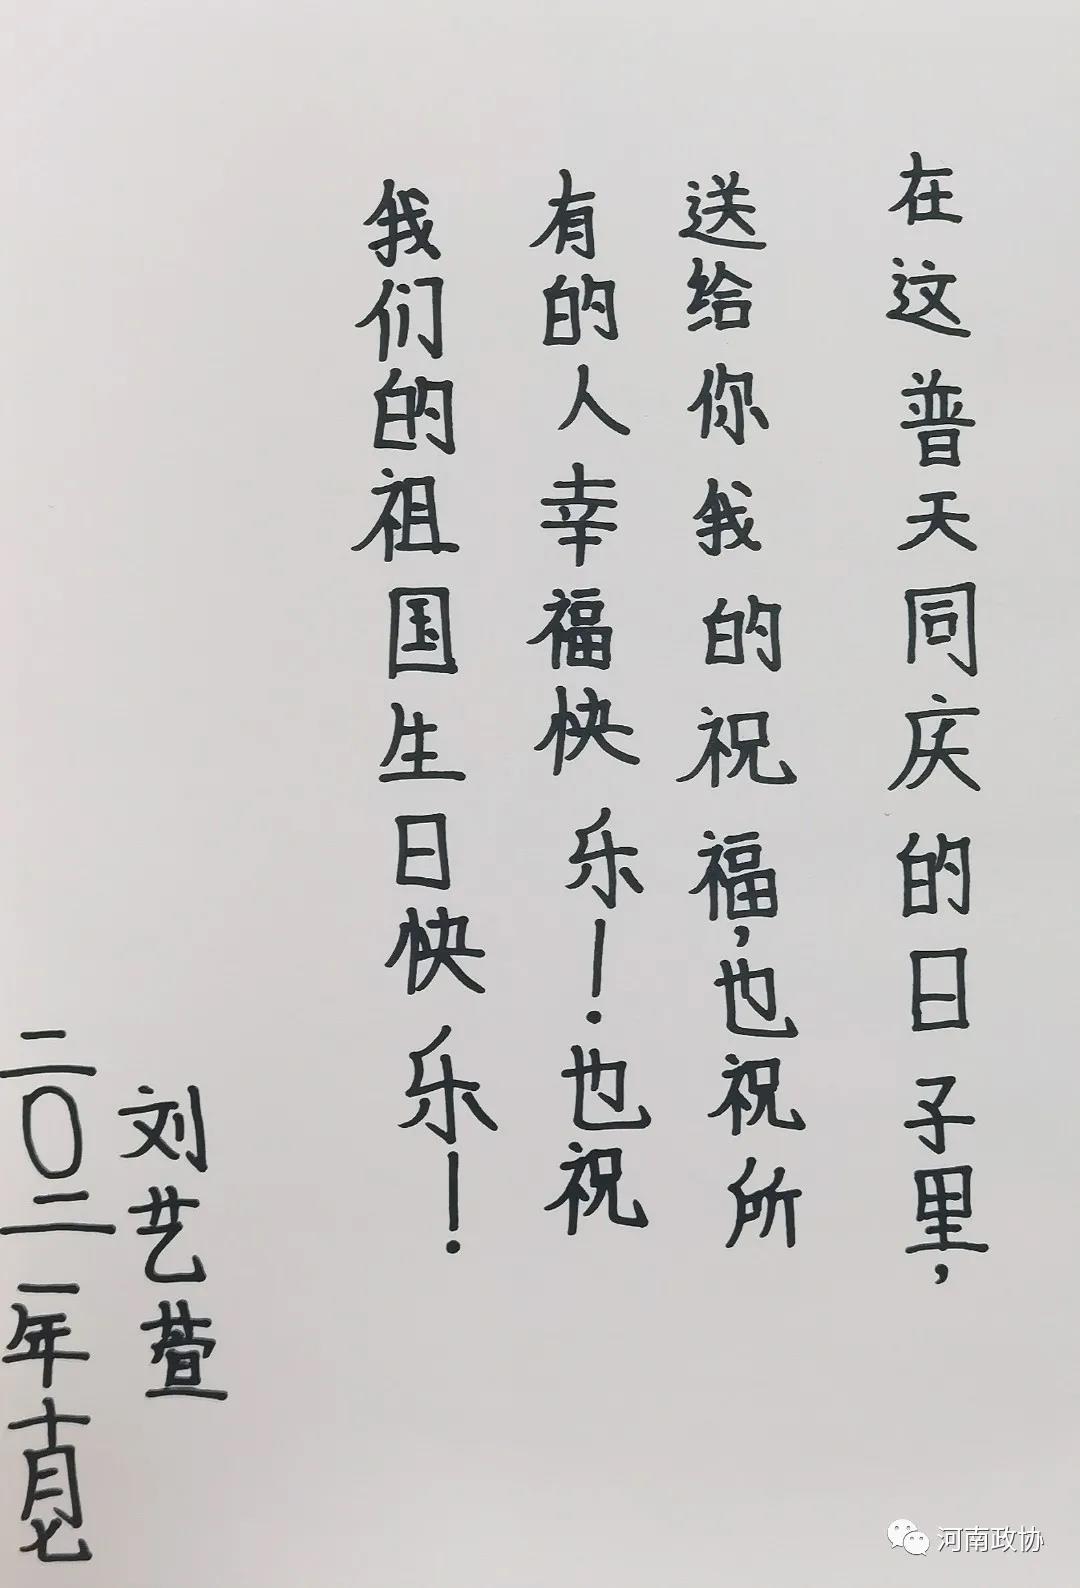 在这普天同庆的日子里，
送给你我的祝福，也祝所
有的人幸福快乐！也祝
我们的祖国生日快乐！
刘艺萱
二〇二一年十月七
河南政协